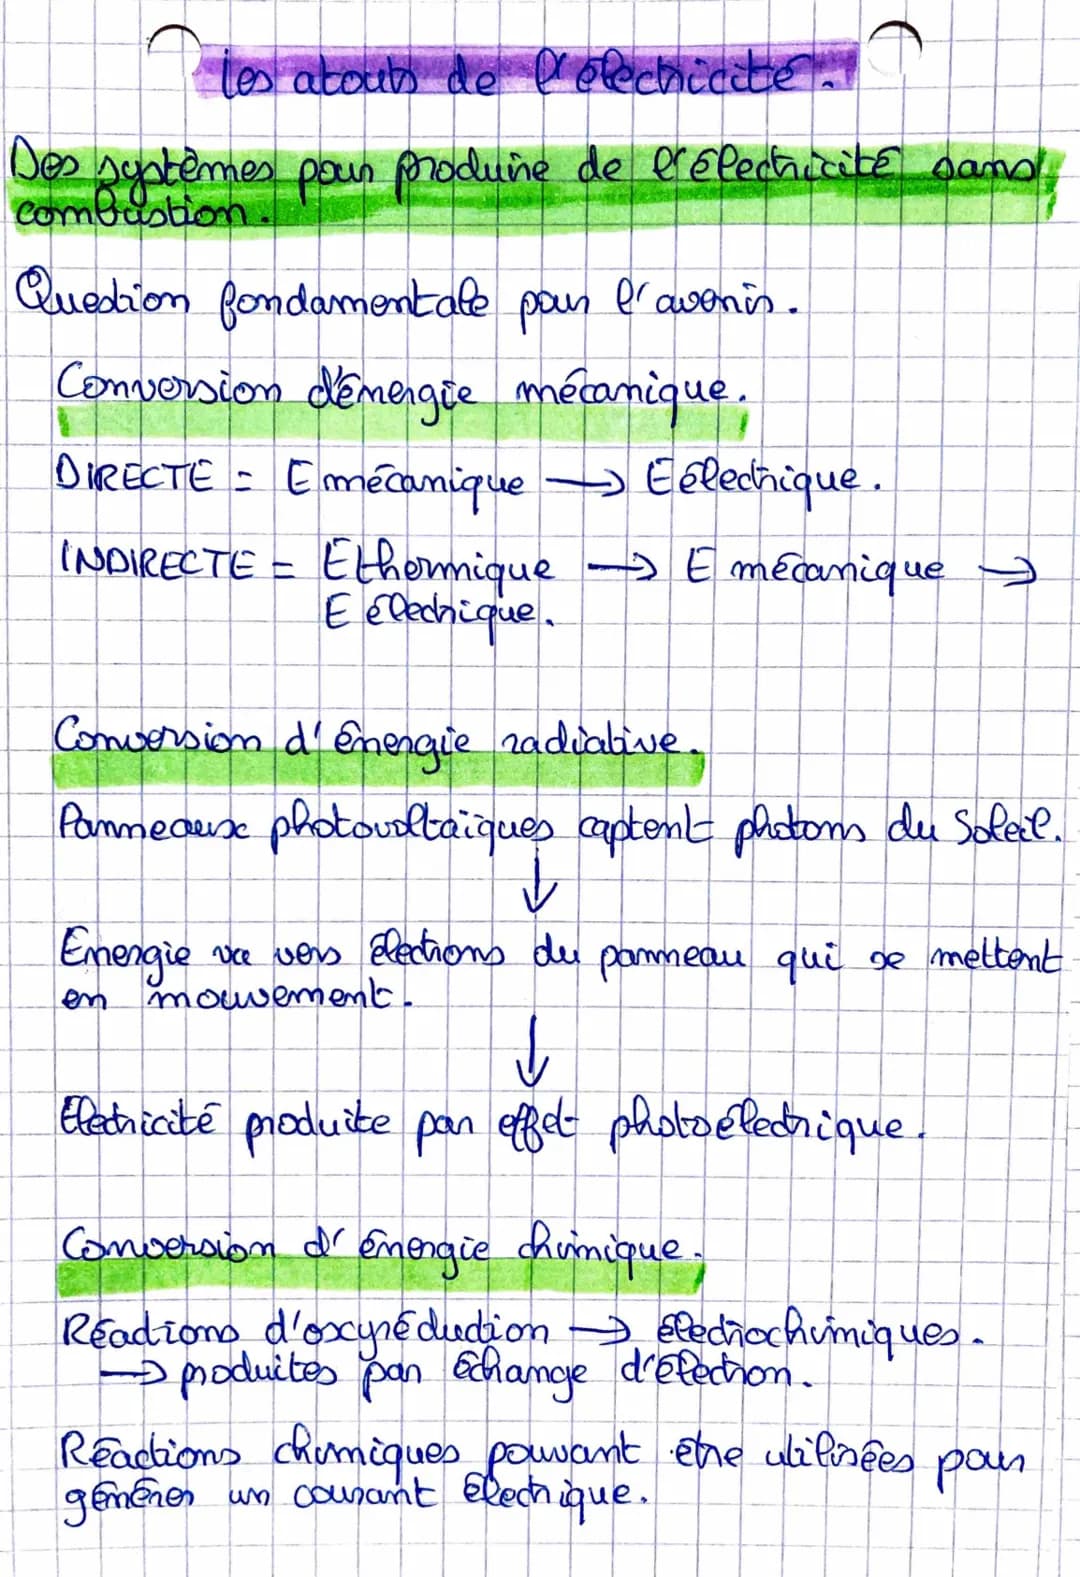 Les atouts de l'électricité.
Des systèmes pour produire de l'électricité sans
combustion.
Question fondamentale pour l'avenir.
Conversion d'énergie mécanique.
DIRECTE = E mécanique → E électrique.
INDIRECTE = E thermique → E mécanique →
E électrique.
Conversion d'énergie radiative.
Panneaux photovoltaïques captent photons du Soleil.
↓
Énergie va vers électrons du panneau qui se mettent
en mouvement.
↓
Électricité produite par effet photoélectrique.
Conversion d'énergie chimique.
Réactions d'oxyréduction → électrochimiques.
→ produites par échange d'électron.
Réactions chimiques pouvant être utilisées pour
générer un courant électrique.